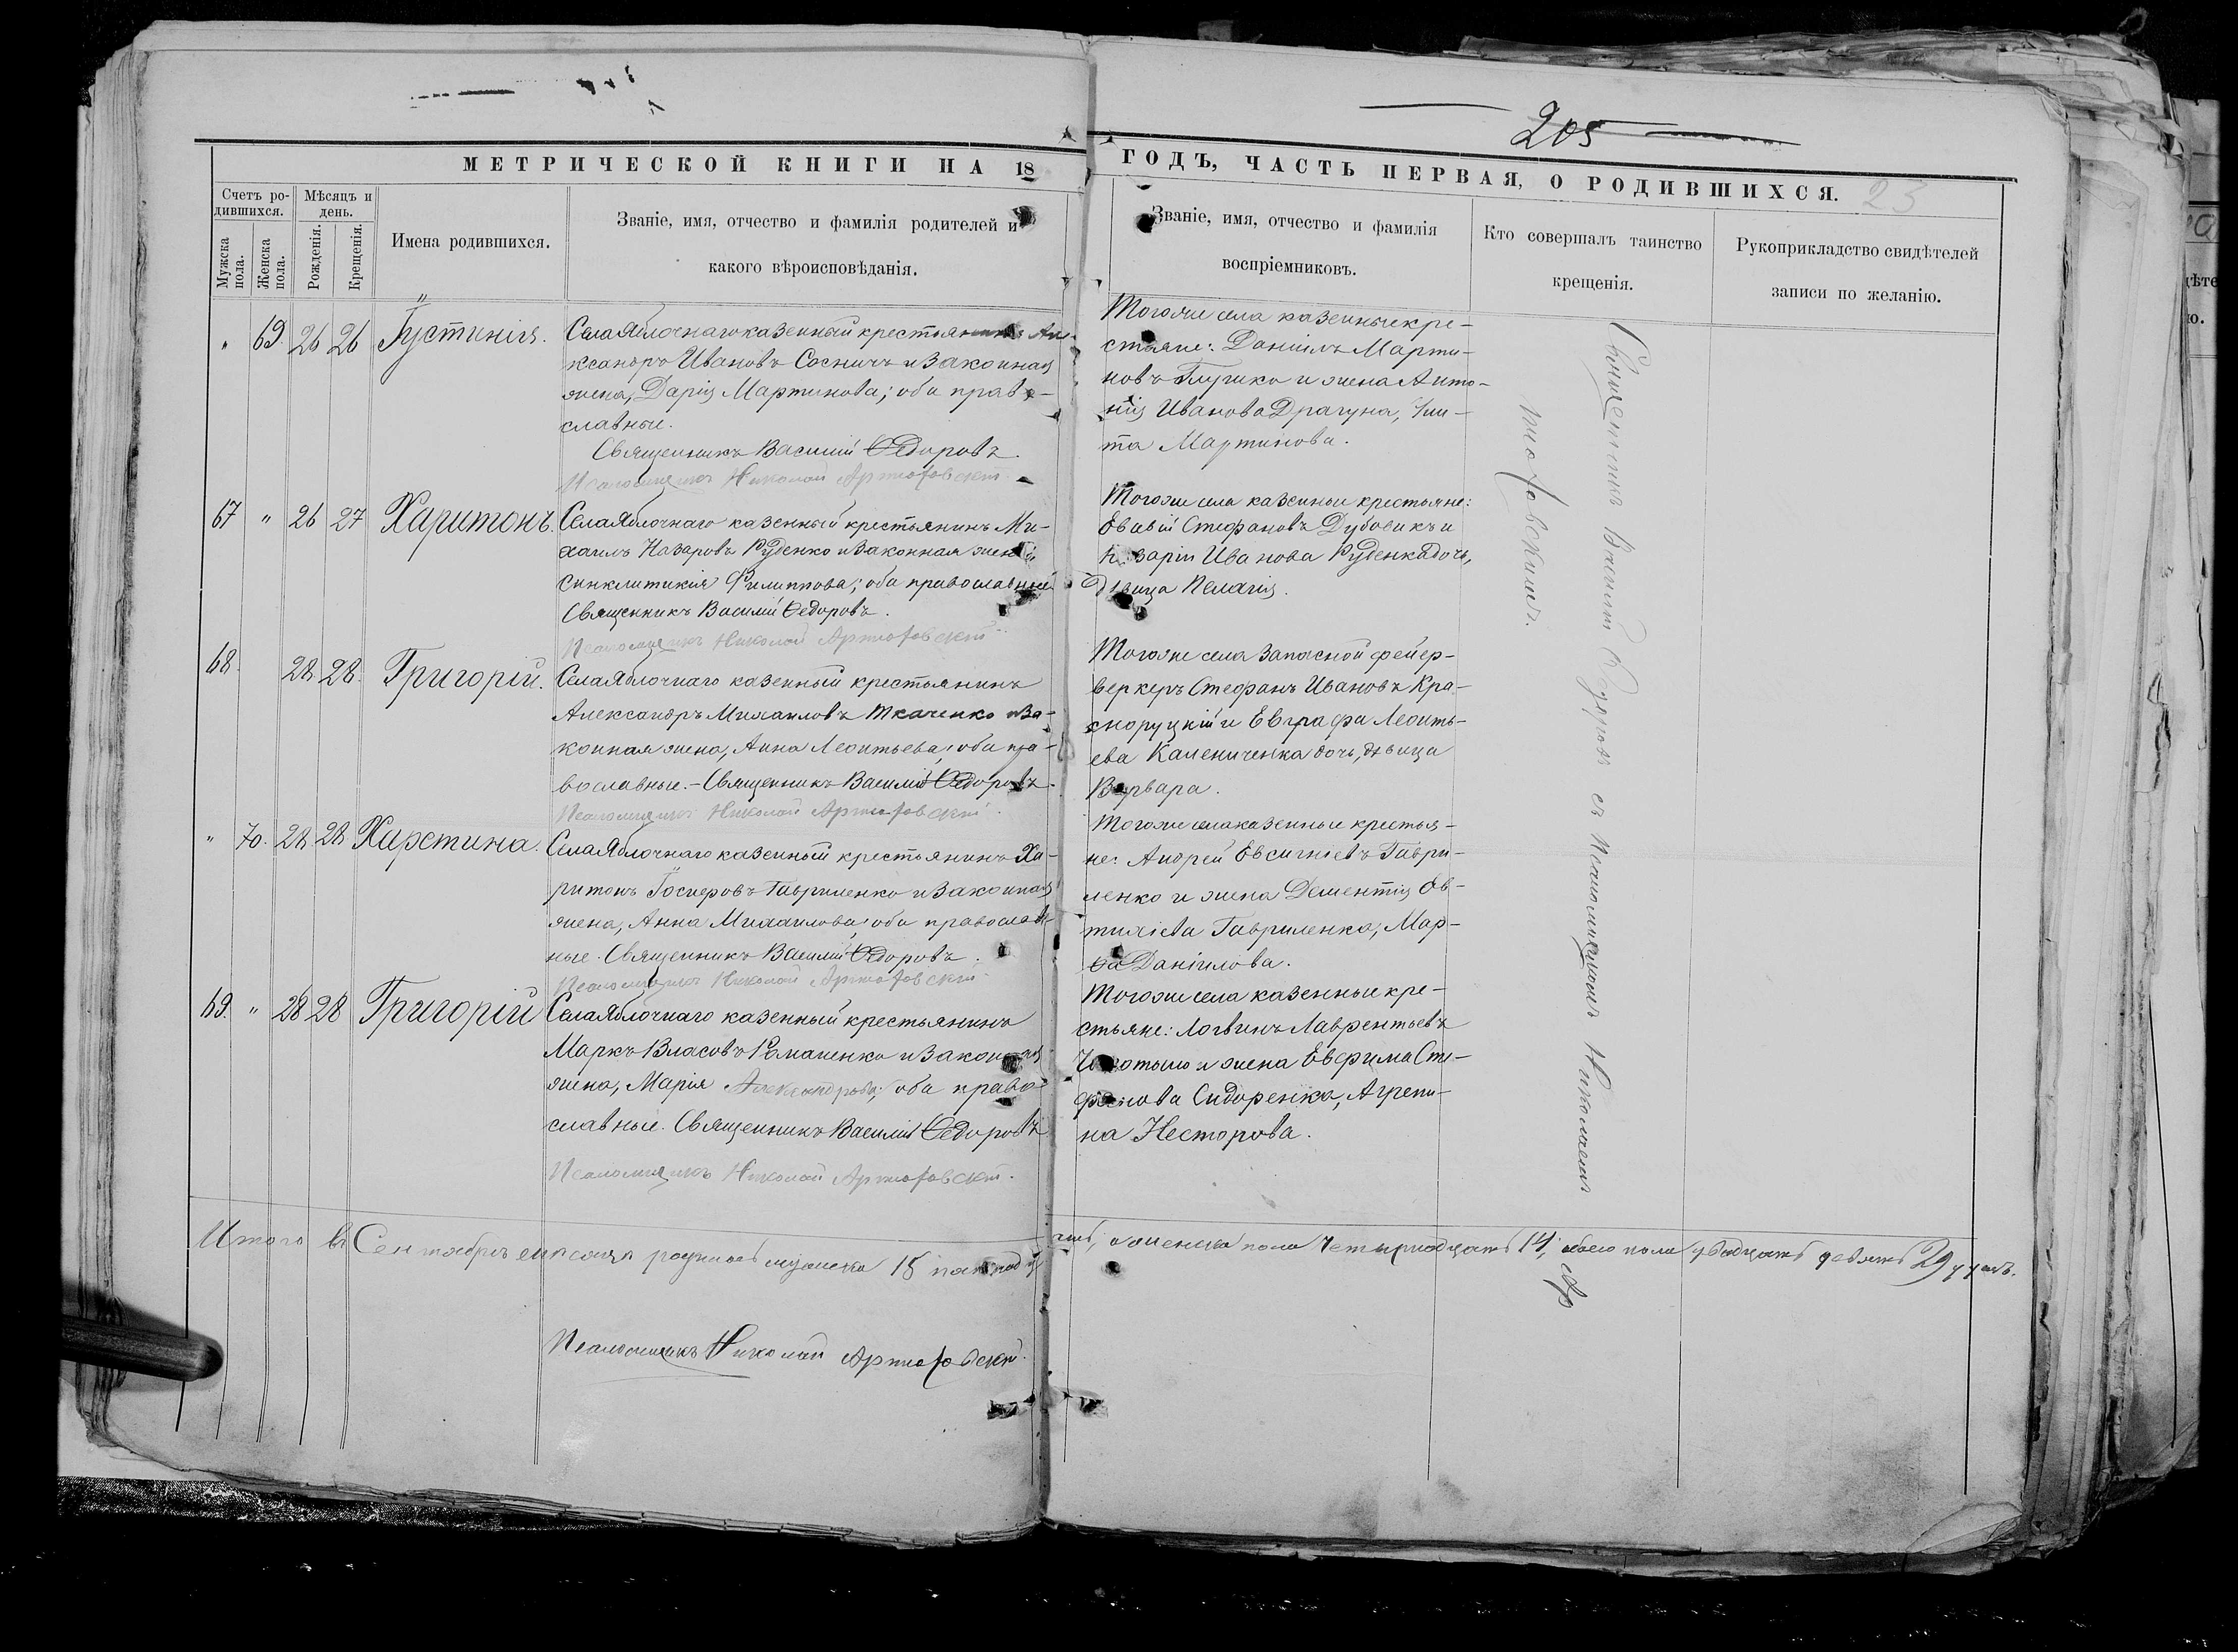 205
МЕТРИЧЕСКОЙ КНИГИ НА 18
ГОДЪ, ЧАСТЬ ПЕРВАЯ, О РОДИВШИХСЯ.
23
Счетъ родившихся.
Мужска пола.
Женска пола.
Мѣсяцъ и день.
Рожденія.
Крещенія.
Имена родившихся.
Званіе, имя, отчество и фамилія родителей и
какого вѣроисповѣданія.
Званіе, имя, отчество и фамилія
воспріемниковъ.
Кто совершалъ таинство
крещенія.
Рукоприкладство свидѣтелей
записи по желанію.
" 69. 26 26 Іустинія.
Села Яблочнаго казенный крестьянинъ Але-
ксандръ Ивановъ Сосничъ и законная
жена, Дарія Мартинова; оба право-
славные.
Священникъ Василій Ѳедоровъ.
Псаломщикъ Николай Артюховскій.
Тогоже села казенные кре-
стьяне: Даніилъ Марти-
новъ и жена Анто-
нія Иванова Драгуна,
Мартинова.
67 " 26 27 Харитонъ.
Села Яблочнаго казенный крестьянинъ Ми-
хаилъ Назаровъ Руденко и законная жена
Синклитикія Филиппова; оба православные
Священникъ Василій Ѳедоровъ.
Псаломщикъ Николай Артюховскій.
Тогоже села казенные крестьяне:
Евсевій Стефановъ Дубовикъ и
Назарія Иванова Руденка дочь,
дѣвица Пелагія.
68. 28 28. Григорій.
Села Яблочнаго казенный крестьянинъ
Александръ Михаиловъ Ткаченко и за-
конная жена, Анна Леонтьева; оба пра-
вославные. - Священникъ Василій Ѳедоровъ.
Псаломщикъ Николай Артюховскій.
Тогоже села запасной фейер-
веркеръ Стефанъ Ивановъ Кра-
сноруцкій и Евграфа Леонть-
ева Калениченка дочь, дѣвица
Варвара.
" 70. 28 28 Харстина.
Села Яблочнаго казенный крестьянинъ Ха-
ритонъ Іосифовъ Гавриленко и законная
жена, Анна Михаилова; оба православ-
ные. Священникъ Василій Ѳедоровъ.
Псаломщикъ Николай Артюховскій.
Тогоже села казенные крестья-
не: Андрей Евсигніевъ Гаври-
ленко и жена Дементія Ев-
тихіева Гавриленка, Мар-
ѳа Даніилова.
69. " 28 28 Григорій
Села Яблочнаго казенный крестьянинъ
Маркъ Власовъ Романенко и законная
жена, Марія Александрова; оба право-
славные. Священникъ Василій Ѳедоровъ
Псаломщикъ Николай Артюховскій.
Тогоже села казенные кре-
стьяне: Логвинъ Лаврентьевъ
и жена Евфима Сте-
фанова Сидоренка, Агрепи-
на Несторова.
Священникъ Василій Ѳедоровъ съ Псаломщикомъ Николаемъ
Артюховскимъ.
Итого въ Сентябрѣ мѣсяцѣ родилось мужска 15 пятнадцать, а женска пола четырнадцать 14, обоего пола двадцать девять 29 душъ.
Псаломщикъ Николай Артюховскій.